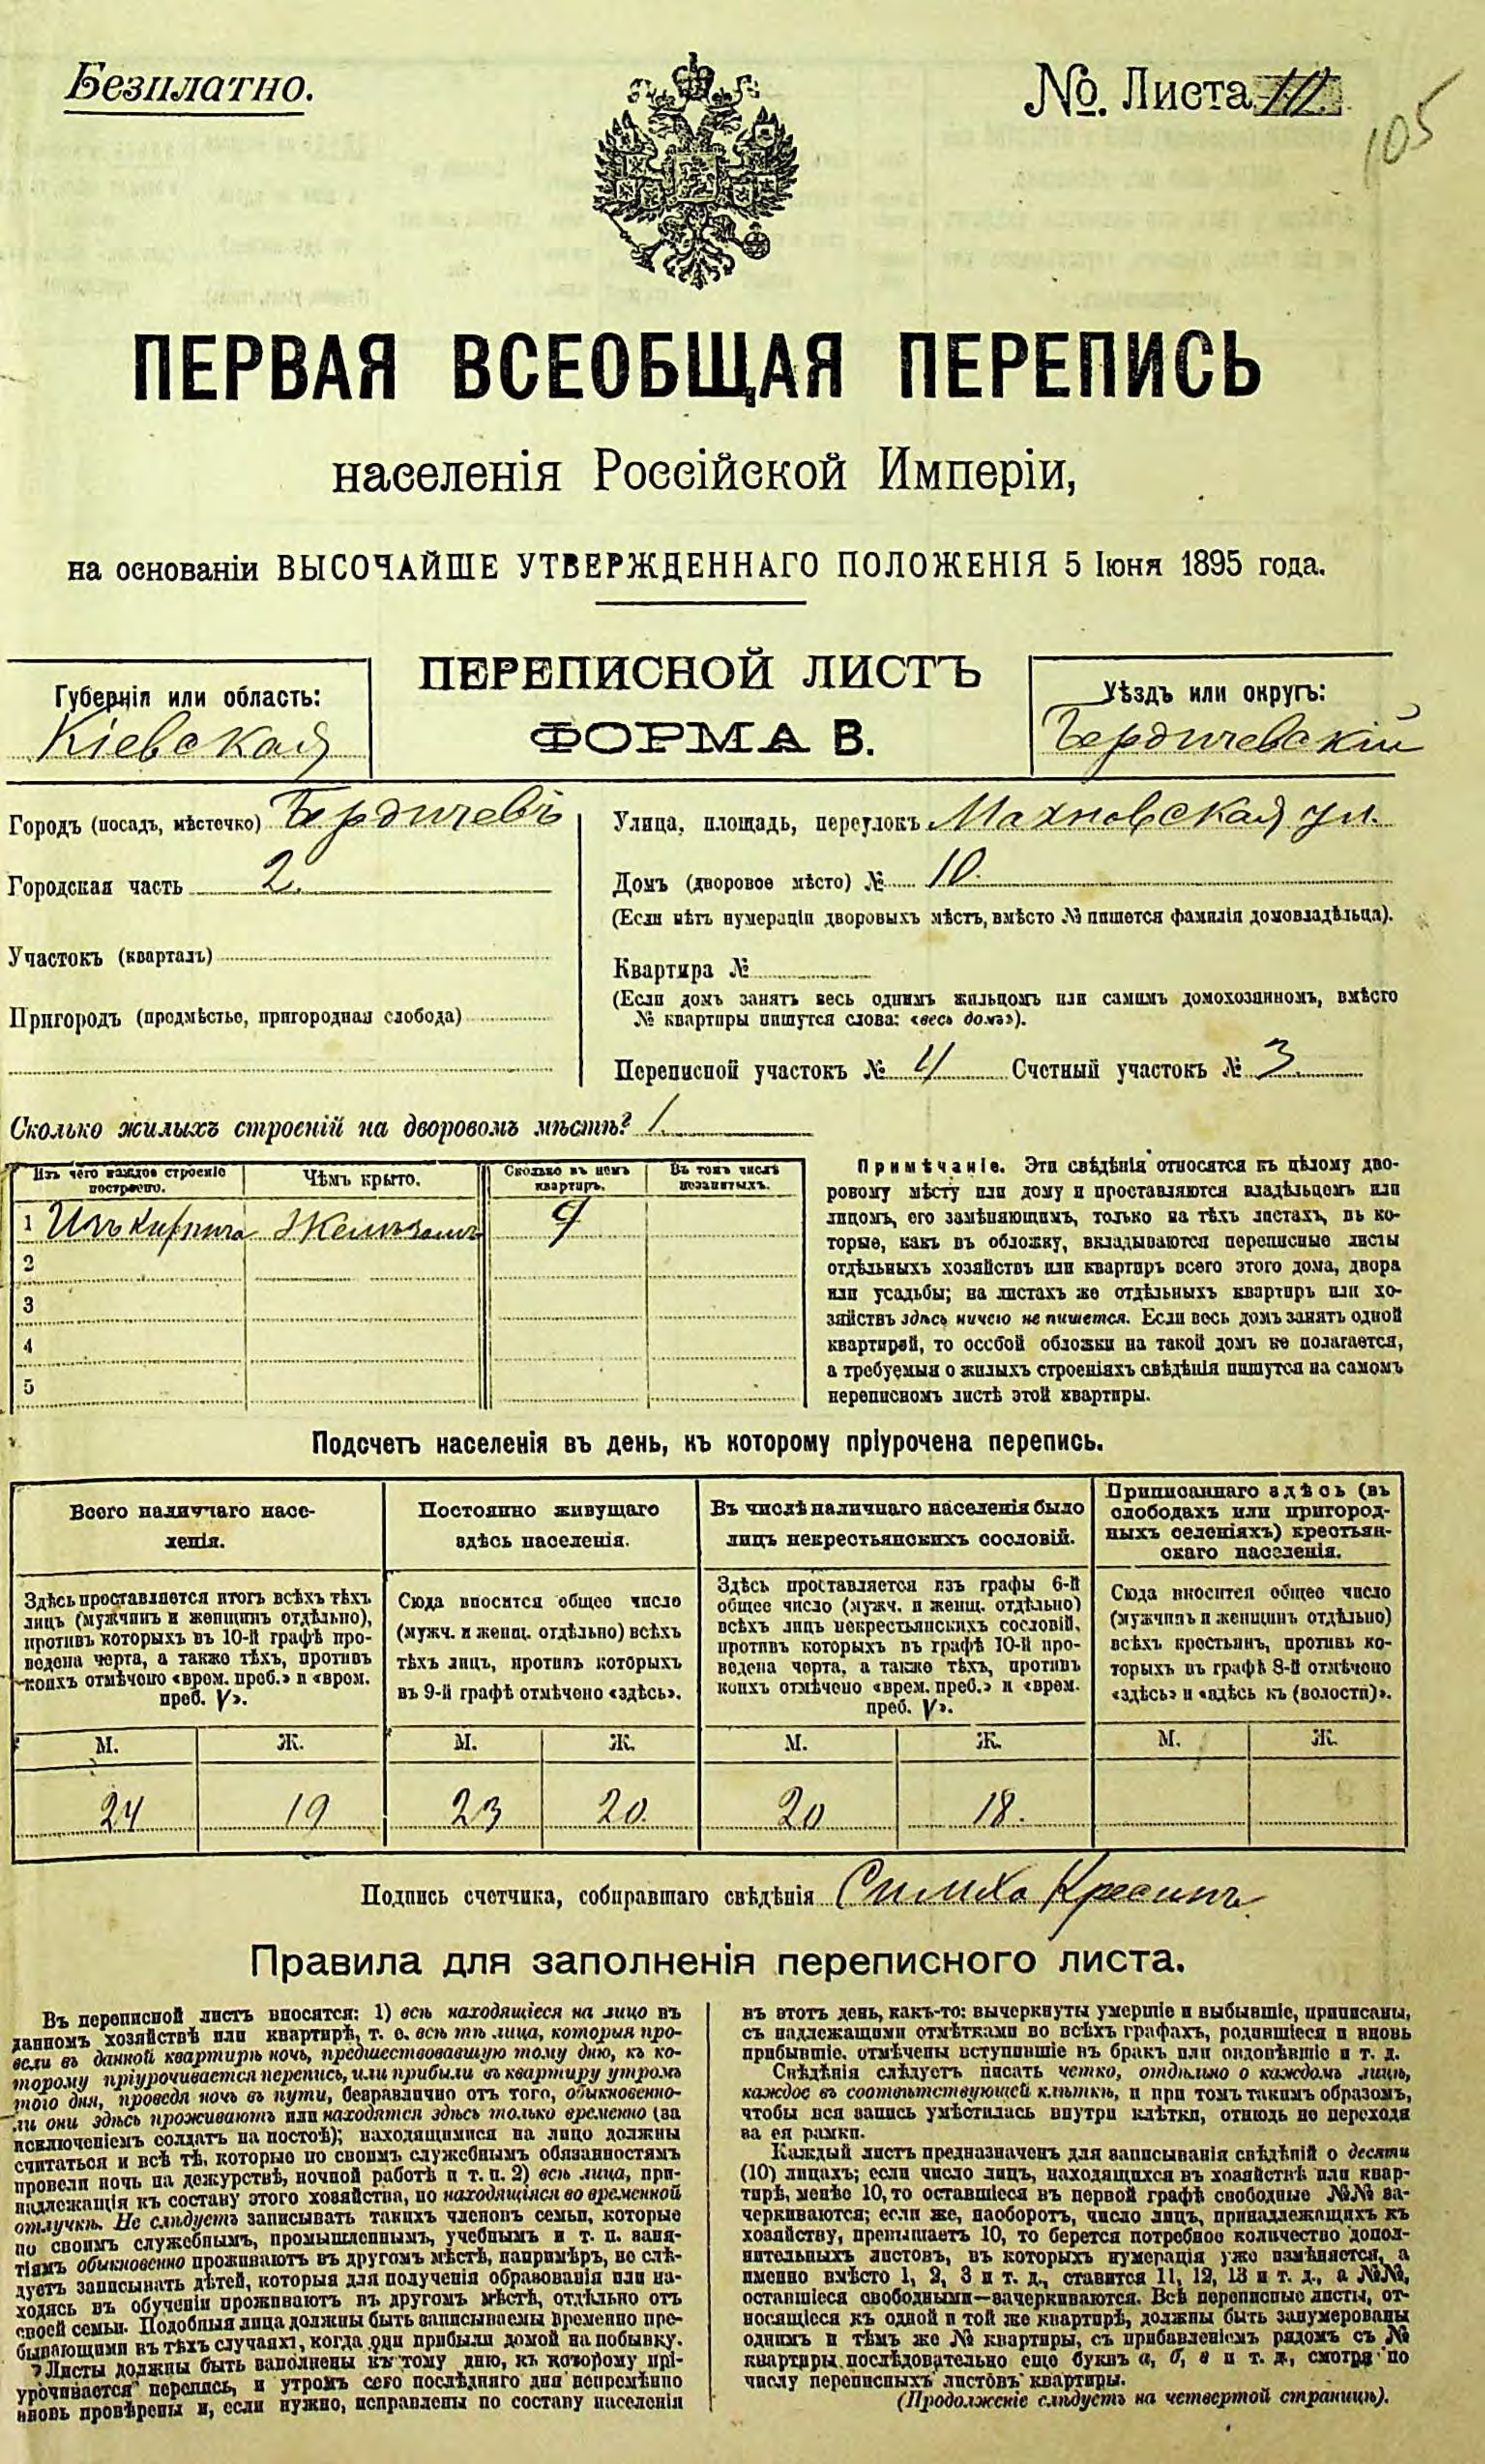 Безплатно.
№. Листа
105
ПЕРВАЯ ВСЕОБЩАЯ ПЕРЕПИСЬ
населенія Россійской Имперіи,
на основаніи ВЫСОЧАЙШЕ УТВЕРЖДЕННАГО ПОЛОЖЕНІЯ 5 Іюня 1895 года.
ПЕРЕПИСНОЙ ЛИСТЪ
ФОРМА В.
Губернія или область:
Кіевская
Уѣздъ или округъ:
Бердичевскій
Городъ (посадъ, мѣстечко) Бердичевъ
Городская часть 2.
Участокъ (кварталъ)
Пригородъ (предмѣстье, пригородная слобода)
Улица, площадь, переулокъ Махновская ул.
Домъ (дворовое мѣсто) № 10.
(Если нѣтъ нумераціи дворовыхъ мѣстъ, вмѣсто № пишется фамилія домовладѣльца).
Квартира №
(Если домъ занятъ весь однимъ жильцомъ или самимъ домохозяиномъ, вмѣсто
№ квартиры пишутся слова: «весь домъ»).
Переписной участокъ № 4 Счетный участокъ № 3.
Сколько жилыхъ строеній на дворовомъ мѣстѣ? 1.
Изъ чего каждое строеніе
построено.
Чѣмъ крыто.
Сколько въ немъ
квартиръ.
Въ томъ числѣ
незанятыхъ.
1 Изъ кирпича Желѣзомъ 9
2
3
4
5
Примѣчаніе. Эти свѣдѣнія относятся къ цѣлому дво-
ровому мѣсту или дому и проставляются владѣльцемъ или
лицомъ, его замѣняющимъ, только на тѣхъ листахъ, въ ко-
торые, какъ въ обложку, вкладываются переписные листы
отдѣльныхъ хозяйствъ или квартиръ всего этого дома, двора
или усадьбы; на листахъ же отдѣльныхъ квартиръ или хо-
зяйствъ здѣсь ничего не пишется. Если весь домъ занятъ одной
квартирой, то особой обложки на такой домъ не полагается,
а требуемыя о жилыхъ строеніяхъ свѣдѣнія пишутся на самомъ
переписномъ листѣ этой квартиры.
Подсчетъ населенія въ день, къ которому пріурочена перепись.
Всего наличнаго насе-
ленія.
Здѣсь проставляется итогъ всѣхъ тѣхъ
лицъ (мужчинъ и женщинъ отдѣльно),
противъ которыхъ въ 10-й графѣ про-
ведена черта, а также тѣхъ, противъ
коихъ отмѣчено «врем. преб.» и «врем.
преб. V».
Постоянно живущаго
здѣсь населенія.
Сюда вносится общее число
(мужч. и женщ. отдѣльно) всѣхъ
тѣхъ лицъ, противъ которыхъ
въ 9-й графѣ отмѣчено «здѣсь».
Въ числѣ наличнаго населенія было
лицъ некрестьянскихъ сословій.
Здѣсь проставляется изъ графы 6-й
общее число (мужч. и женщ. отдѣльно)
всѣхъ лицъ некрестьянскихъ сословій,
противъ которыхъ въ графѣ 10-й про-
ведена черта, а также тѣхъ, противъ
коихъ отмѣчено «врем. преб.» и «врем.
преб. V».
Приписаннаго здѣсь (въ
слободахъ или пригород-
ныхъ селеніяхъ) крестьян-
скаго населенія.
Сюда вносится общее число
(мужчинъ и женщинъ отдѣльно)
всѣхъ крестьянъ, противъ ко-
торыхъ въ графѣ 8-й отмѣчено
«здѣсь» и «здѣсь къ (волости)».
М. Ж. М. Ж. М. Ж. М. Ж.
24 19 23 20. 20 18.
Подпись счетчика, собиравшаго свѣдѣнія Симха Кресинъ
Правила для заполненія переписного листа.
Въ переписной листъ вносятся: 1) всѣ находящіеся на лицо въ
данномъ хозяйствѣ или квартирѣ, т. е. всѣ тѣ лица, которыя про-
вели въ данной квартирѣ ночь, предшествовавшую тому дню, къ ко-
торому пріурочивается перепись, или прибыли въ квартиру утромъ
того дня, проведя ночь въ пути, безразлично отъ того, обыкновенно-
ли они здѣсь проживаютъ или находятся здѣсь только временно (за
исключеніемъ солдатъ на постоѣ); находящимися на лицо должны
считаться и всѣ тѣ, которые по своимъ служебнымъ обязанностямъ
провели ночь на дежурствѣ, ночной работѣ и т. п. 2) всѣ лица, при-
надлежащія къ составу этого хозяйства, но находящіяся во временной
отлучкѣ. Не слѣдуетъ записывать такихъ членовъ семьи, которые
по своимъ служебнымъ, промышленнымъ, учебнымъ и т. п. заня-
тіямъ обыкновенно проживаютъ въ другомъ мѣстѣ, напримѣръ, не слѣ-
дуетъ записывать дѣтей, которыя для полученія образованія или на-
ходясь въ обученіи проживаютъ въ другомъ мѣстѣ, отдѣльно отъ
своей семьи. Подобныя лица должны быть записываемы временно пре-
бывающими въ тѣхъ случаяхъ, когда они прибыли домой на побывку.
Листы должны быть заполнены къ тому дню, къ которому прі-
урочивается перепись, и утромъ сего послѣдняго дня непремѣнно
вновь провѣрены и, если нужно, исправлены по составу населенія
въ этотъ день, какъ-то: вычеркнуты умершіе и выбывшіе, приписаны,
съ надлежащими отмѣтками во всѣхъ графахъ, родившіеся и вновь
прибывшіе, отмѣчены вступившіе въ бракъ или овдовѣвшіе и т. д.
Свѣдѣнія слѣдуетъ писать четко, отдѣльно о каждомъ лицѣ,
каждое въ соотвѣтствующей клѣткѣ, и при томъ такимъ образомъ,
чтобы вся запись умѣстилась внутри клѣтки, отнюдь не переходя
за ея рамки.
Каждый листъ предназначенъ для записыванія свѣдѣній о десяти
(10) лицахъ; если число лицъ, находящихся въ хозяйствѣ или квар-
тирѣ, менѣе 10, то оставшіеся въ первой графѣ свободные №№ за-
черкиваются; если же, наоборотъ, число лицъ, принадлежащихъ къ
хозяйству, превышаетъ 10, то берется потребное количество допол-
нительныхъ листовъ, въ которыхъ нумерація уже измѣняется, а
именно вмѣсто 1, 2, 3 и т. д., ставится 11, 12, 13 и т. д., а №№,
оставшіеся свободными—зачеркиваются. Всѣ переписные листы, от-
носящіеся къ одной и той же квартирѣ, должны быть занумерованы
однимъ и тѣмъ же № квартиры, съ прибавленіемъ рядомъ съ №
квартиры послѣдовательно еще буквъ а, б, в и т. д., смотря по
числу переписныхъ листовъ квартиры.
(Продолженіе слѣдуетъ на четвертой страницѣ).